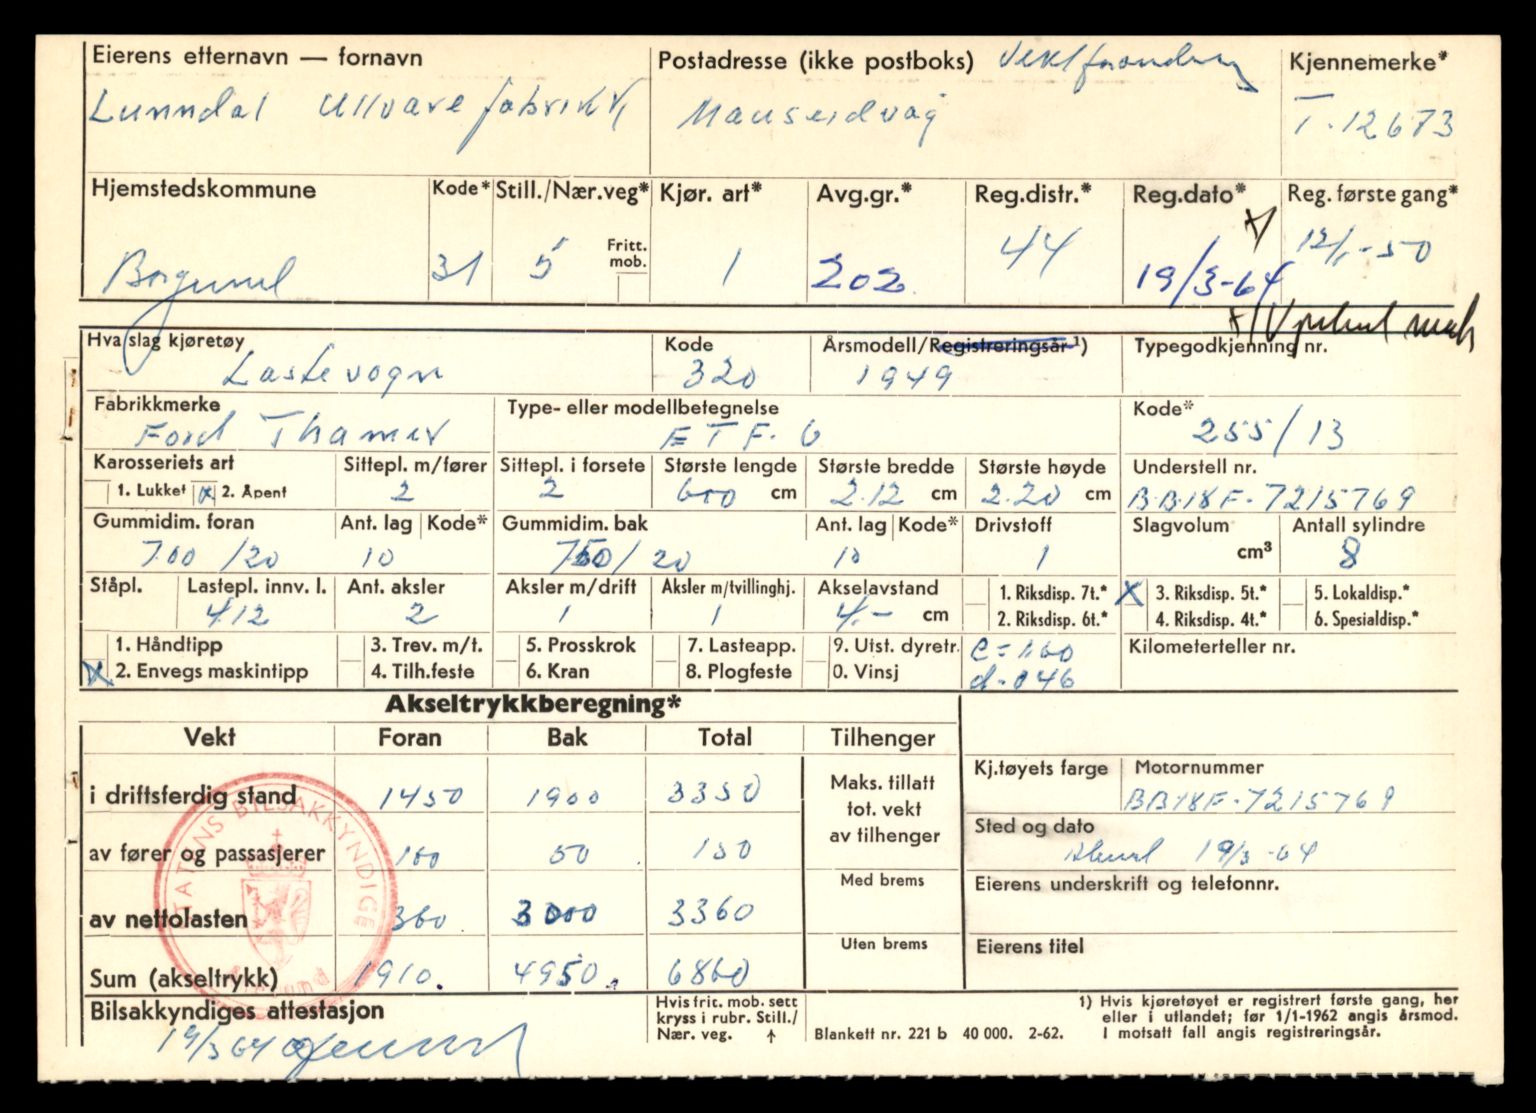 Eierens etternavn — fornavn
Postadresse (ikke postboks)
Kjennemerke*
Lunndal Ullvarefabrikk,
Mauseidvåg
T-12673
Hjemstedskommune Kode* Still./Nær.veg* Kjør. art* Avg.gr.* Reg.distr.* Reg.dato* Reg. første gang*
Fritt. mob.
Borgund 31 5 1 202 44 19/3-64 12/1-50
Hva slag kjøretøy Kode Årsmodell/Registreringsår ¹) Typegodkjenning nr.
Lastevogn 320 1949
Fabrikkmerke Type- eller modellbetegnelse Kode*
Ford Thamer ETF. 6 255/13
Karosseriets art Sittepl. m/fører Sittepl. i forsete Største lengde Største bredde Største høyde Understell nr.
1. Lukket x 2. Åpent 2 2 600 cm 2.12 cm 2.20 cm BB18F-7215769
Gummidim. foran Ant. lag Kode* Gummidim. bak Ant. lag Kode* Drivstoff Slagvolum Antall sylindre
700/20 10 750/20 10 1 cm³ 8
Ståpl. Lastepl. innv. l. Ant. aksler Aksler m/drift Aksler m/tvillinghj. Akselavstand 1. Riksdisp. 7t.* x 3. Riksdisp. 5t.* 5. Lokaldisp.*
412 2 1 1 4.- cm 2. Riksdisp. 6t.* 4. Riksdisp. 4t.* 6. Spesialdisp.*
1. Håndtipp 3. Trev. m/t. 5. Prosskrok 7. Lasteapp. 9. Utst. dyretr. c=1.60 Kilometerteller nr.
x 2. Envegs maskintipp 4. Tilh.feste 6. Kran 8. Plogfeste 0. Vinsj d-046
Akseltrykkberegning*
Vekt Foran Bak Total Tilhenger
i driftsferdig stand 1450 1900 3350
Maks. tillatt tot. vekt av tilhenger
Kj.tøyets farge Motornummer
BB18F-7215769
Sted og dato
av fører og passasjerer 100 50 150
19/3-64
Med brems
Eierens underskrift og telefonnr.
av nettolasten 360 3000 3360
Uten brems
Eierens titel
Sum (akseltrykk) 1910. 4950. 6860
STATENS BILSAKKYNDIGE
Bilsakkyndiges attestasjon
19/3 64
Hvis frit. mob. sett
kryss i rubr. Still./
Nær. veg. ↑
Blankett nr. 221 b 40 000. 2-62.
1) Hvis kjøretøyet er registrert første gang, her
eller i utlandet; før 1/1-1962 angis årsmod.
I motsatt fall angis registreringsår.